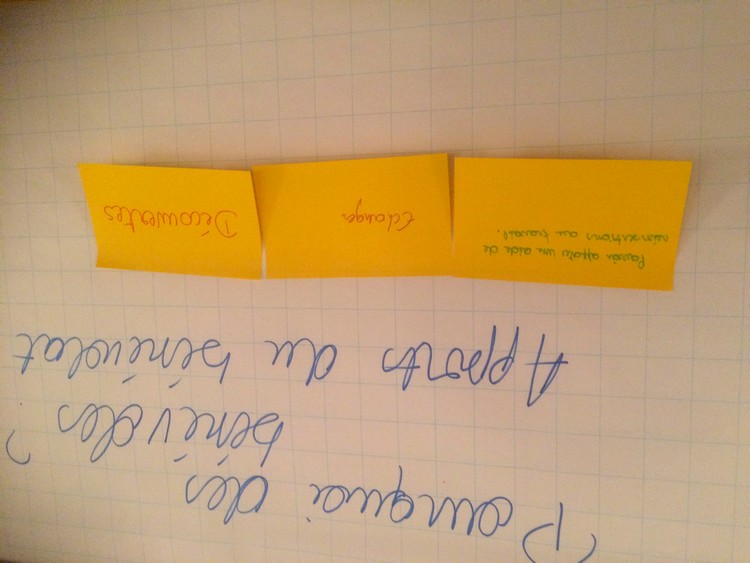 Pourquoi des
bénévoles ?
Apports du bénévolat
Pouvoir apporter une aide de
réinsertions au travail.
Echanges
Découvertes